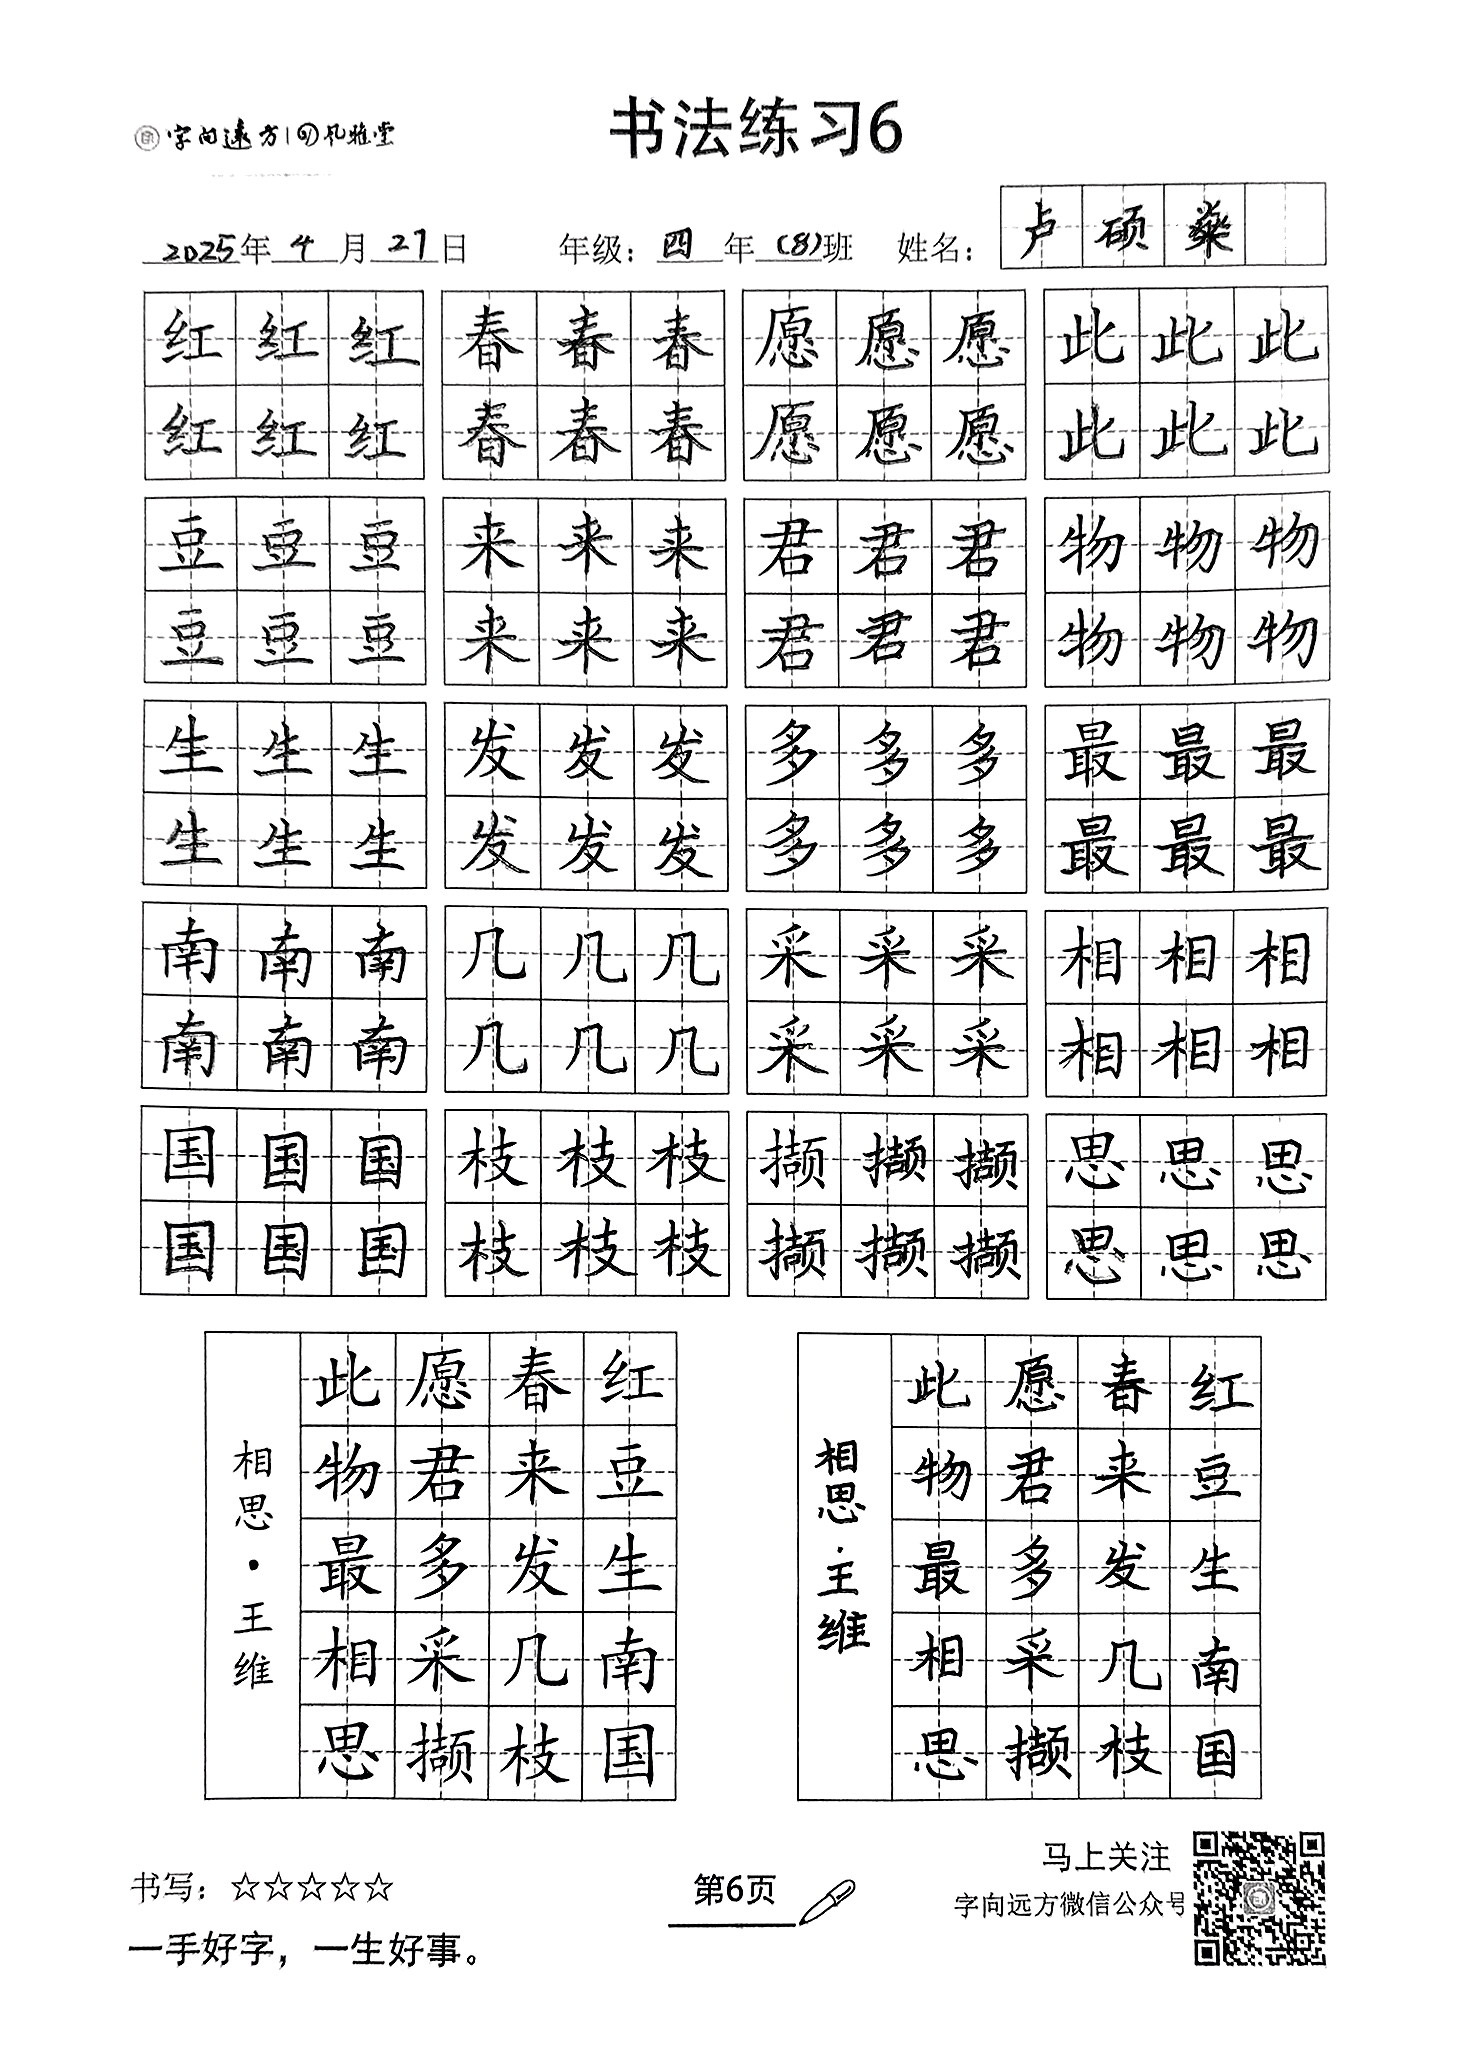 字向遠方 | 风雅堂
书法练习6
2025年4月27日 年级：四年(8)班 姓名：卢硕燊
红红红 春春春 愿愿愿 此此此
红红红 春春春 愿愿愿 此此此
豆豆豆 来来来 君君君 物物物
豆豆豆 来来来 君君君 物物物
生生生 发发发 多多多 最最最
生生生 发发发 多多多 最最最
南南南 几几几 采采采 相相相
南南南 几几几 采采采 相相相
国国国 枝枝枝 撷撷撷 思思思
国国国 枝枝枝 撷撷撷 思思思
红豆生南国
春来发几枝
愿君多采撷
此物最相思
相思·王维
红豆生南国
春来发几枝
愿君多采撷
此物最相思
相思·主维
书写：☆☆☆☆☆
一手好字，一生好事。
第6页
马上关注
字向远方微信公众号